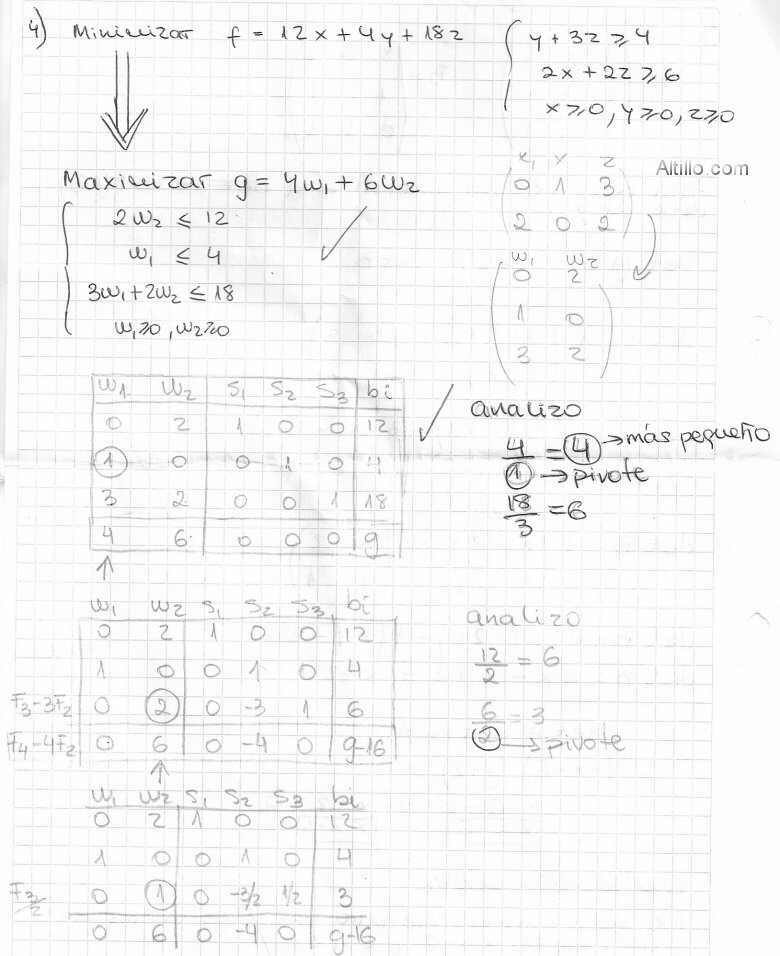 4) Minimizar f = 12x + 4y + 18z
y + 3z ≥ 4
2x + 2z ≥ 6
x ≥ 0, y ≥ 0, z ≥ 0
Altillo.com
x₁ y z
0 1 3
2 0 2
Maximizar g = 4w₁ + 6w₂
2w₂ ≤ 12
w₁ ≤ 4
3w₁ + 2w₂ ≤ 18
w₁ ≥ 0, w₂ ≥ 0
w₁ w₂
0 2
1 0
3 2
w1 w2 s1 s2 s3 bi
0 2 1 0 0 12
1 0 0 1 0 4
3 2 0 0 1 18
4 6 0 0 0 g
analizo
4/1 = 4 → más pequeño
→ pivote
18/3 = 6
w1 w2 s1 s2 s3 bi
0 2 1 0 0 12
1 0 0 1 0 4
F3-3F2 0 2 0 -3 1 6
F4-4F2 0 6 0 -4 0 g-16
analizo
12/2 = 6
6/2 = 3
→ pivote
w1 w2 s1 s2 s3 bi
0 2 1 0 0 12
1 0 0 1 0 4
F3/2 0 1 0 -3/2 1/2 3
0 6 0 -4 0 g-16